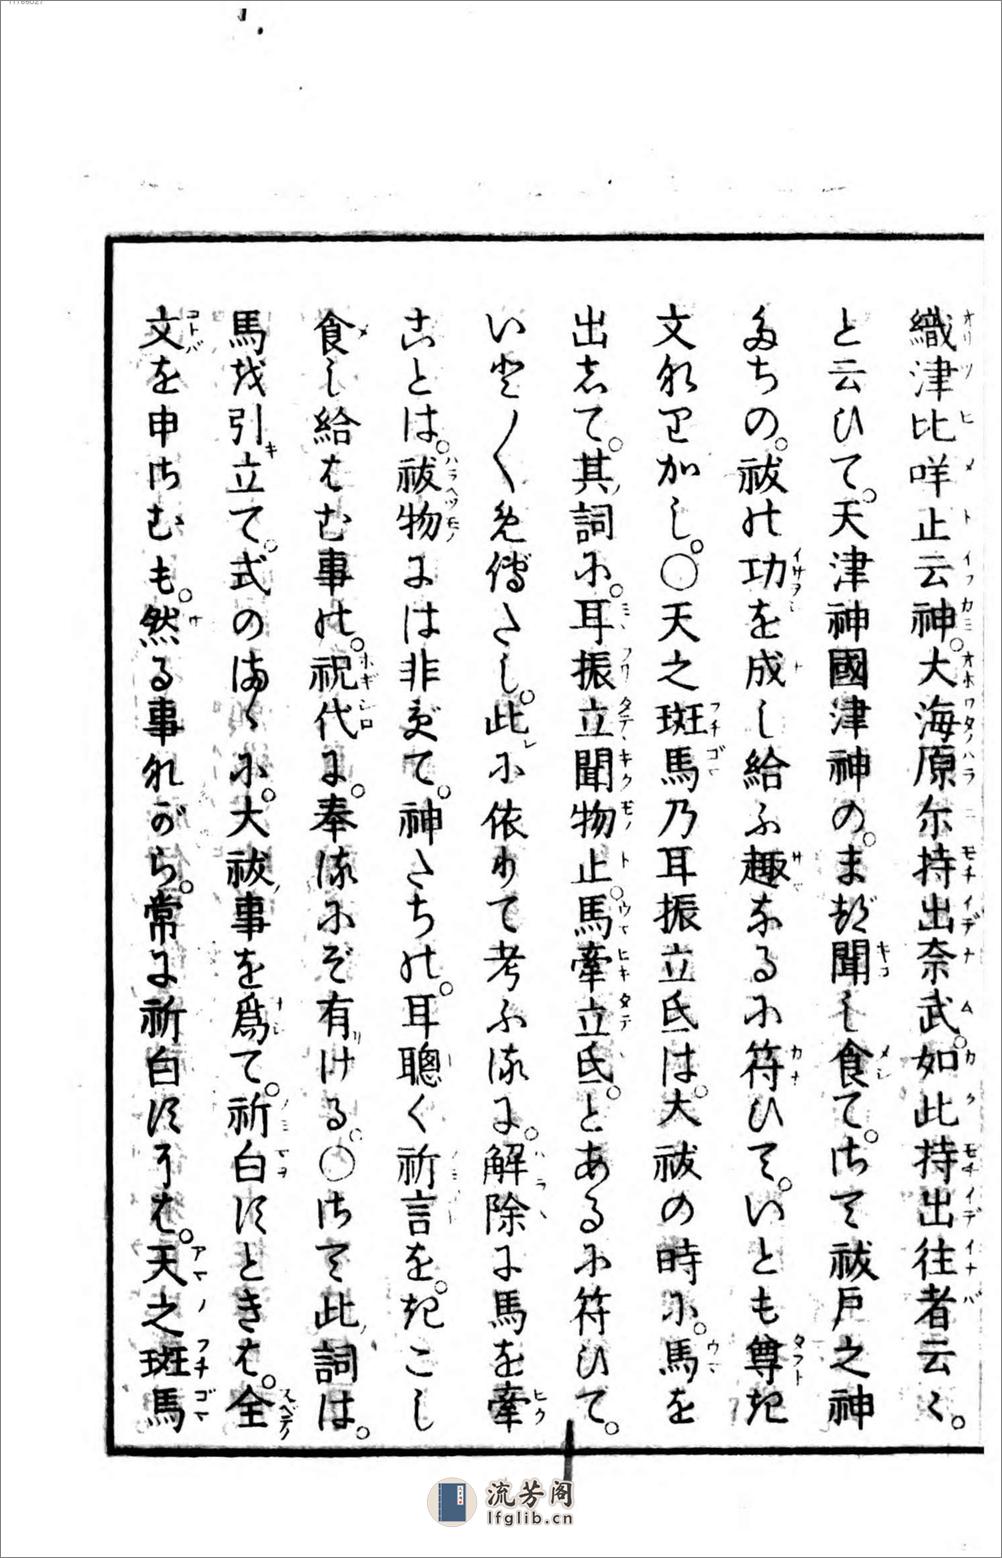 織津比咩止云神。大海原尓持出奈武。如此持出往者云々。
と云ひて。天津神國津神の。まづ聞し食て。さて祓戸之神
たちの。祓の功を成し給ふ趣なるに符ひて。いとも尊き
文なりかし。○天之斑馬乃耳振立氐は。大祓の時に。馬を
出して。其詞に。耳振立聞物止。馬牽立氐。とあるに符ひて。
いと〳〵めでたし。此に依りて考ふるに。解除に馬を牽
ことは。祓物には非ずて。神たちの。耳聰く祈言を。きこし
食し給はむ事の。祝代に。奉るにぞ有ける。○さて此詞は。
馬を引立て。式のまゝに。大祓事を爲て。祈白すときは。全
文を申さむも。然る事ながら。常に祈白すには。天之斑馬
流芳阁
lfglib.cn